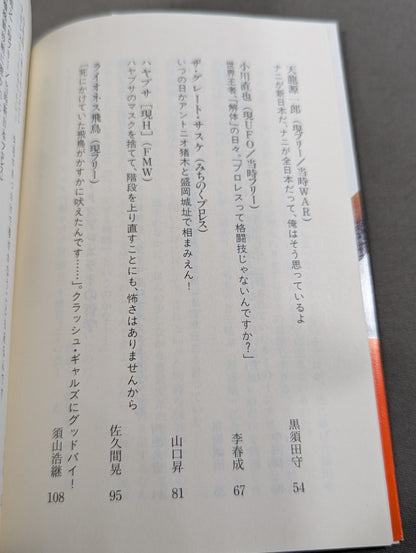 天龍源一郎（現フリー／当時WAR）
ナニが新日本だ、ナニが全日本だって、俺はそう思っているよ
黒須田守
54
小川直也（現UFO／当時フリー）
世界王者、「解体」の日々。「プロレスって格闘技じゃないんですか？」
李春成
67
ザ・グレート・サスケ（みちのくプロレス）
いつの日かアントニオ猪木と盛岡城址で相まみえん！
山口昇
81
ハヤブサ［現H］（FMW）
ハヤブサのマスクを捨てて、階段を上り直すことにも、怖さはありませんから
佐久間晃
95
ライオネス飛鳥（現フリー）
「死にかけていた飛鳥がかすかに吠えたんです……」。クラッシュ・ギャルズにグッドバイ！
須山浩継
108